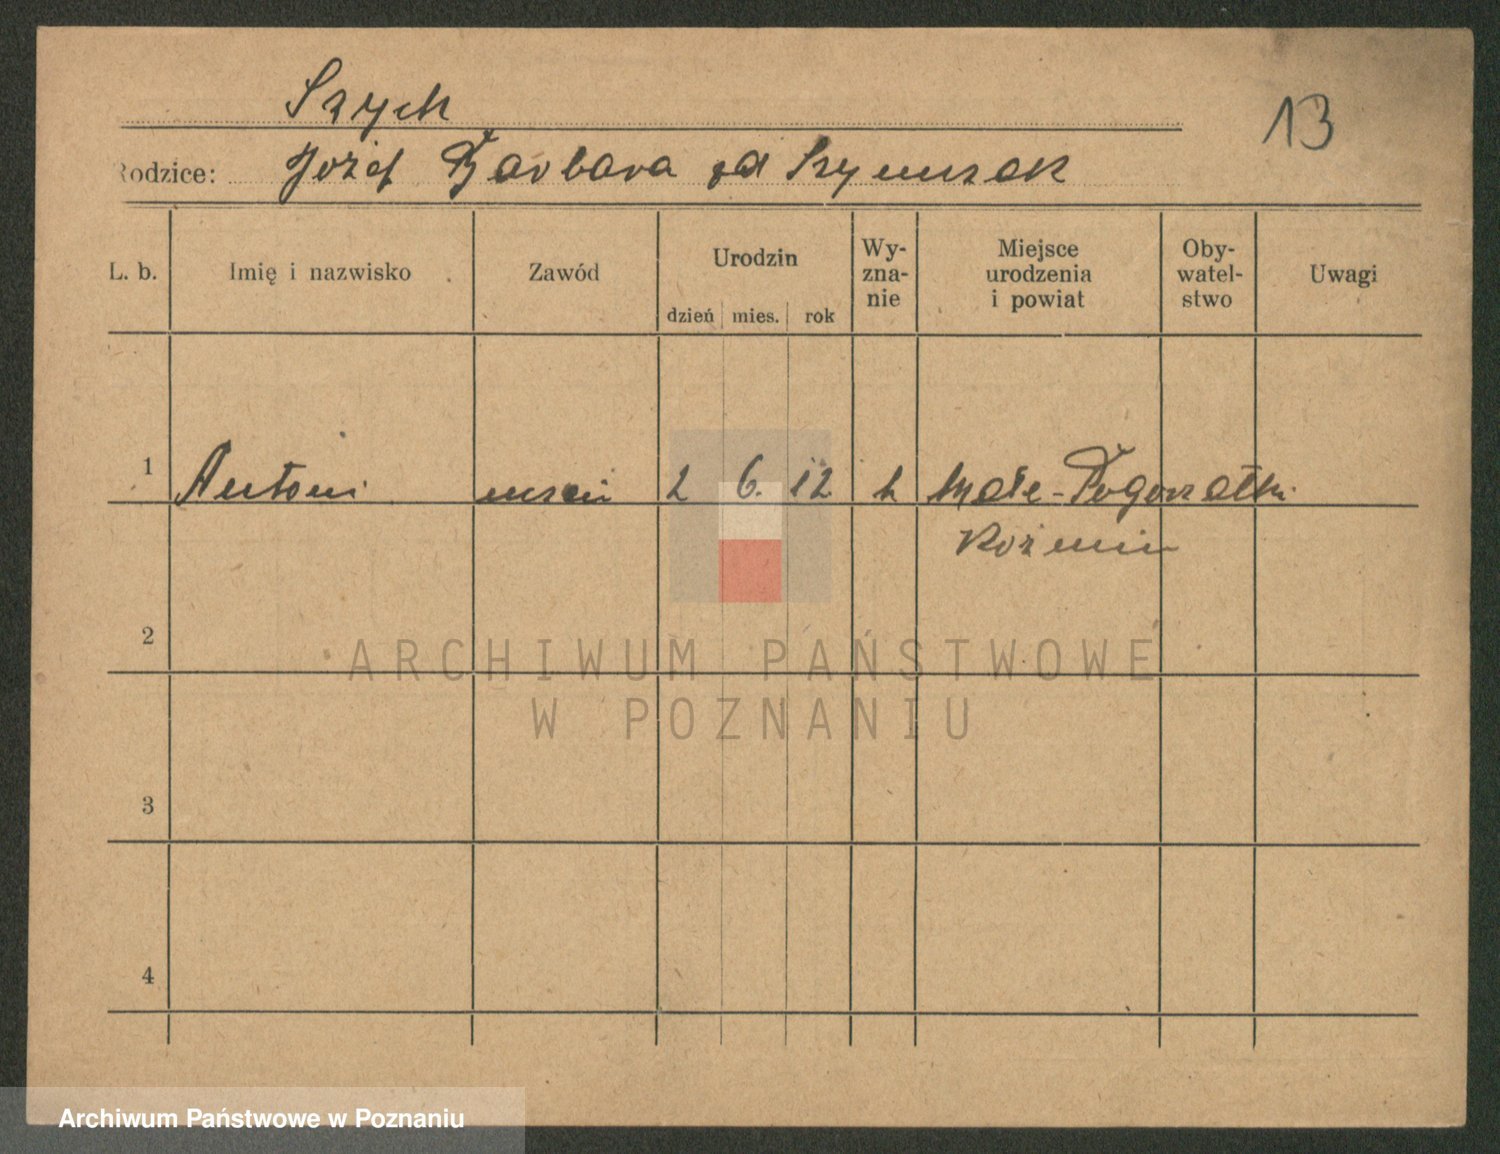 Szych
13
Rodzice: Józef Barbara zd Szymczak
L. b. Imię i nazwisko Zawód Urodzin dzień mies. rok Wy-zna-nie Miejsce urodzenia i powiat Oby-watel-stwo Uwagi
1 Antoni uczeń 2 6. 12 k Małe-Pogorzałki
Koźmin
2
ARCHIWUM PAŃSTWOWE
W POZNANIU
3
4
Archiwum Państwowe w Poznaniu